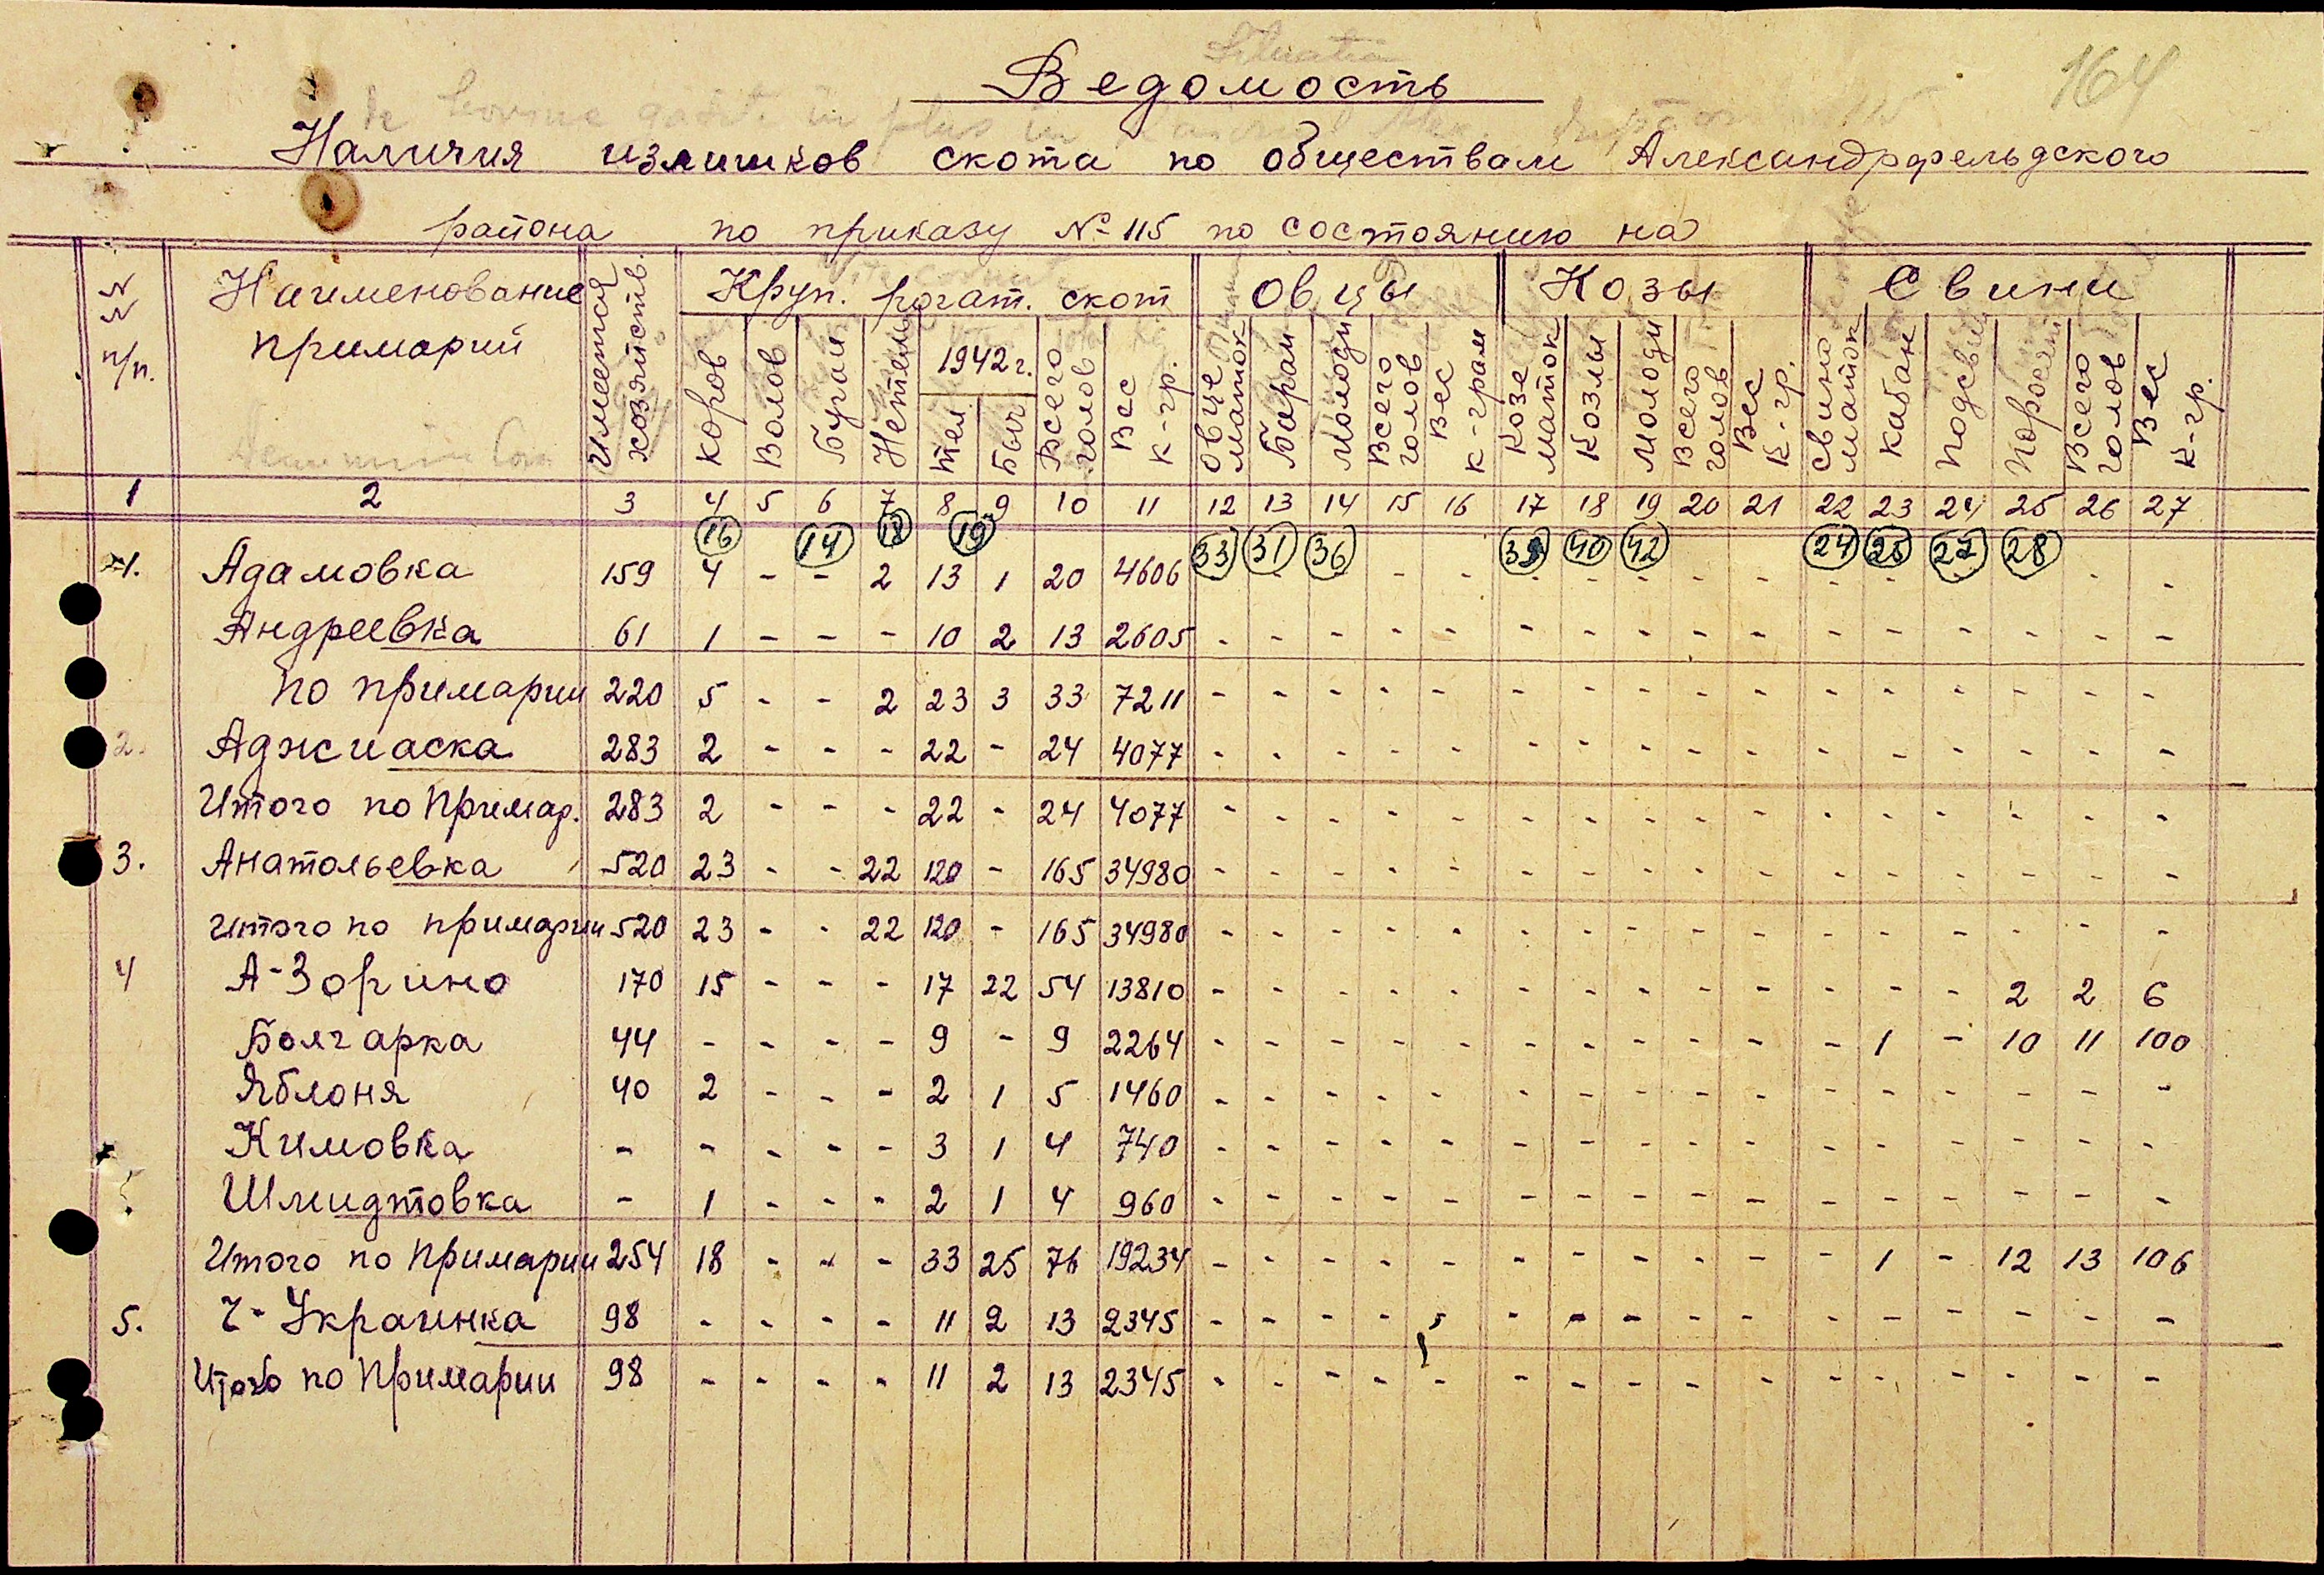 164
Ведомость
Наличия излишков скота по обществам Александрфельдского
района по приказу № 115 по состоянию на
№ № п/п. | Наименование примарий | Имеется хозяйств. | Круп. рогат. скот | Овцы | Козы | Свини
Коров | Волов | Бугаи | Нетель | 1942 г. | Тел | Быч | Всего голов | Вес к-гр. | Овце маток | Баран | Молоди | Всего голов | Вес к-грам | Козе маток | Козлы | Молоди | Всего голов | Вес к-гр. | Свино маток | Кабан | Подсви | Поросят | Всего голов | Вес к-гр.
1 2 3 4 5 6 7 8 9 10 11 12 13 14 15 16 17 18 19 20 21 22 23 24 25 26 27
16 14 18 19 33 31 36 39 40 42 24 25 27 28
1. Адамовка 159 4 - - 2 13 1 20 4606 - - - - - - - - - - - - -
Андреевка 61 1 - - - 10 2 13 2605 - - - - - - - - - - - - - - - -
по примарии 220 5 - - 2 23 3 33 7211 - - - - - - - - - - - - - - - -
2. Аджиаска 283 2 - - - 22 - 24 4077 - - - - - - - - - - - - - - - -
Итого по Примар. 283 2 - - - 22 - 24 4077 - - - - - - - - - - - - - - - -
3. Анатольевка 520 23 - - 22 120 - 165 34980 - - - - - - - - - - - - - - - -
Итого по примарии 520 23 - - 22 120 - 165 34980 - - - - - - - - - - - - - - - -
4 А-Зорино 170 15 - - - 17 22 54 13810 - - - - - - - - - - - - - 2 2 6
Болгарка 44 - - - - 9 - 9 2264 - - - - - - - - - - - 1 - 10 11 100
Яблоня 40 2 - - - 2 1 5 1460 - - - - - - - - - - - - - - - -
Кимовка - - - - - 3 1 4 740 - - - - - - - - - - - - - - - -
Шмидтовка - 1 - - - 2 1 4 960 - - - - - - - - - - - - - - - -
Итого по Примарии 254 18 - - - 33 25 76 19234 - - - - - - - - - - - 1 - 12 13 106
5. Г-Украинка 98 - - - - 11 2 13 2345 - - - - - - - - - - - - - - - -
Итого по Примарии 98 - - - - 11 2 13 2345 - - - - - - - - - - - - - - - -